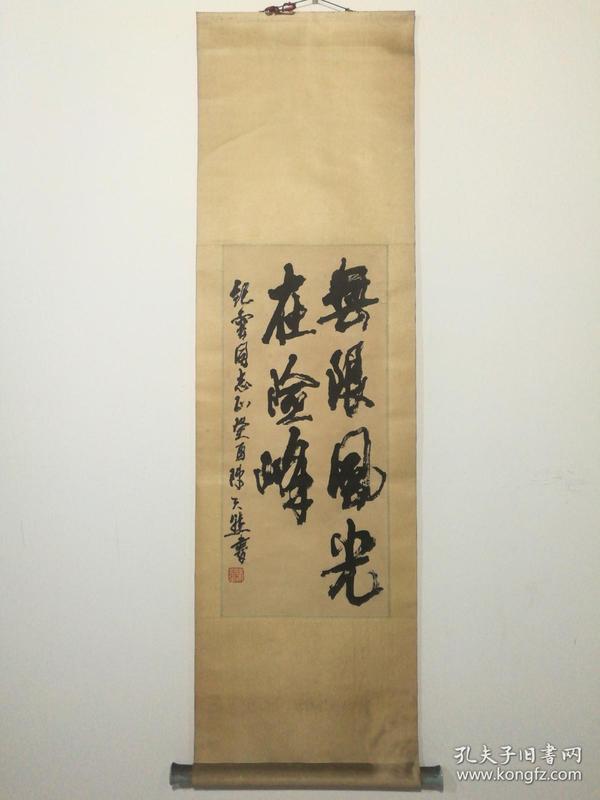 無限風光
在險峰
紀雲同志正癸酉陳天然書
孔夫子旧書网
www.kongfz.com